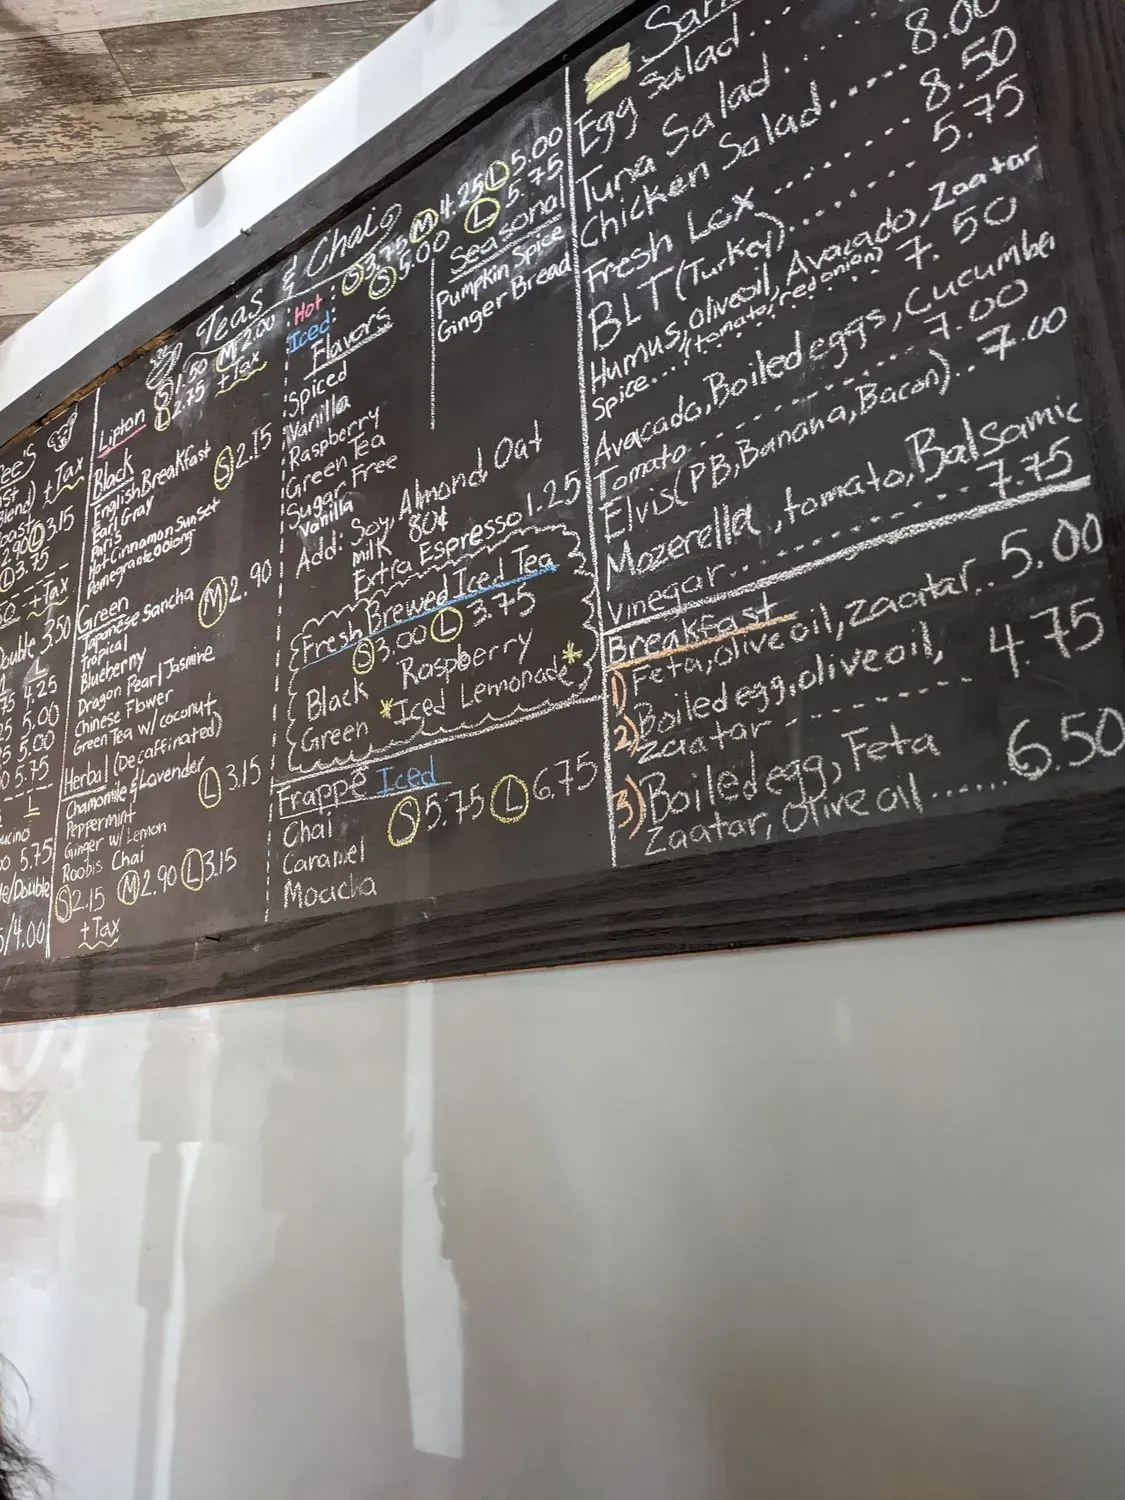 + Tax
3.15
3.75
+Tax
Double 3.50
L
4.25
5.00
5.00
5.75
L
5.75
/Double
/4.00
Teas & Chai
Lipton S 1.50 M 2.00
L 2.75 + Tax
Black S 2.15
English BreakFast
Earl Gray
Paris
Hot Cinnamon Sunset
Pomegranate Oolong
Green M 2.90
Japanese Sencha
Tropical
Blueberry
Dragon Pearl Jasmine
Chinese Flower
Green Tea w/ coconut
Herbal (Decaffinated)
Chamomile & Lavender L 3.15
Peppermint
Ginger w/ Lemon
Roobis Chai
S 2.15 M 2.90 L 3.15
+ Tax
Hot: S 3.75 M 4.25 L 5.00
Iced: S 5.00 L 5.75
Flavors
Spiced
Vanilla
Raspberry
Green Tea
Sugar Free
Vanilla
Seasonal
Pumpkin Spice
Ginger Bread
Add: Soy, Almond, Oat
milk 80¢
Extra Espresso 1.25
Fresh Brewed Iced Tea
S 3.00 L 3.75
Black Raspberry
Green *Iced Lemonade*
Frappé Iced
Chai S 5.75 L 6.75
Caramel
Mocicha
Egg Salad...
Tuna Salad...
Chicken Salad..... 8.00
Fresh Lox ......... 8.50
BLT (Turkey)...... 5.75
Humus, olive oil, Avacado, Zaatar
Spice... (tomato, red onion) 7.50
Avacado, Boiled eggs, Cucumber
Tomato ........ 7.00
Elvis (PB, Banana, Bacon).. 7.00
Mozerella, tomato, Balsamic
Vinegar............ 7.75
BreakFast
1) Feta, olive oil, zaatar.. 5.00
2) Boiled egg, olive oil,
zaatar - - - - - - - - 4.75
3) Boiled egg, Feta
Zaatar, olive oil ...... 6.50